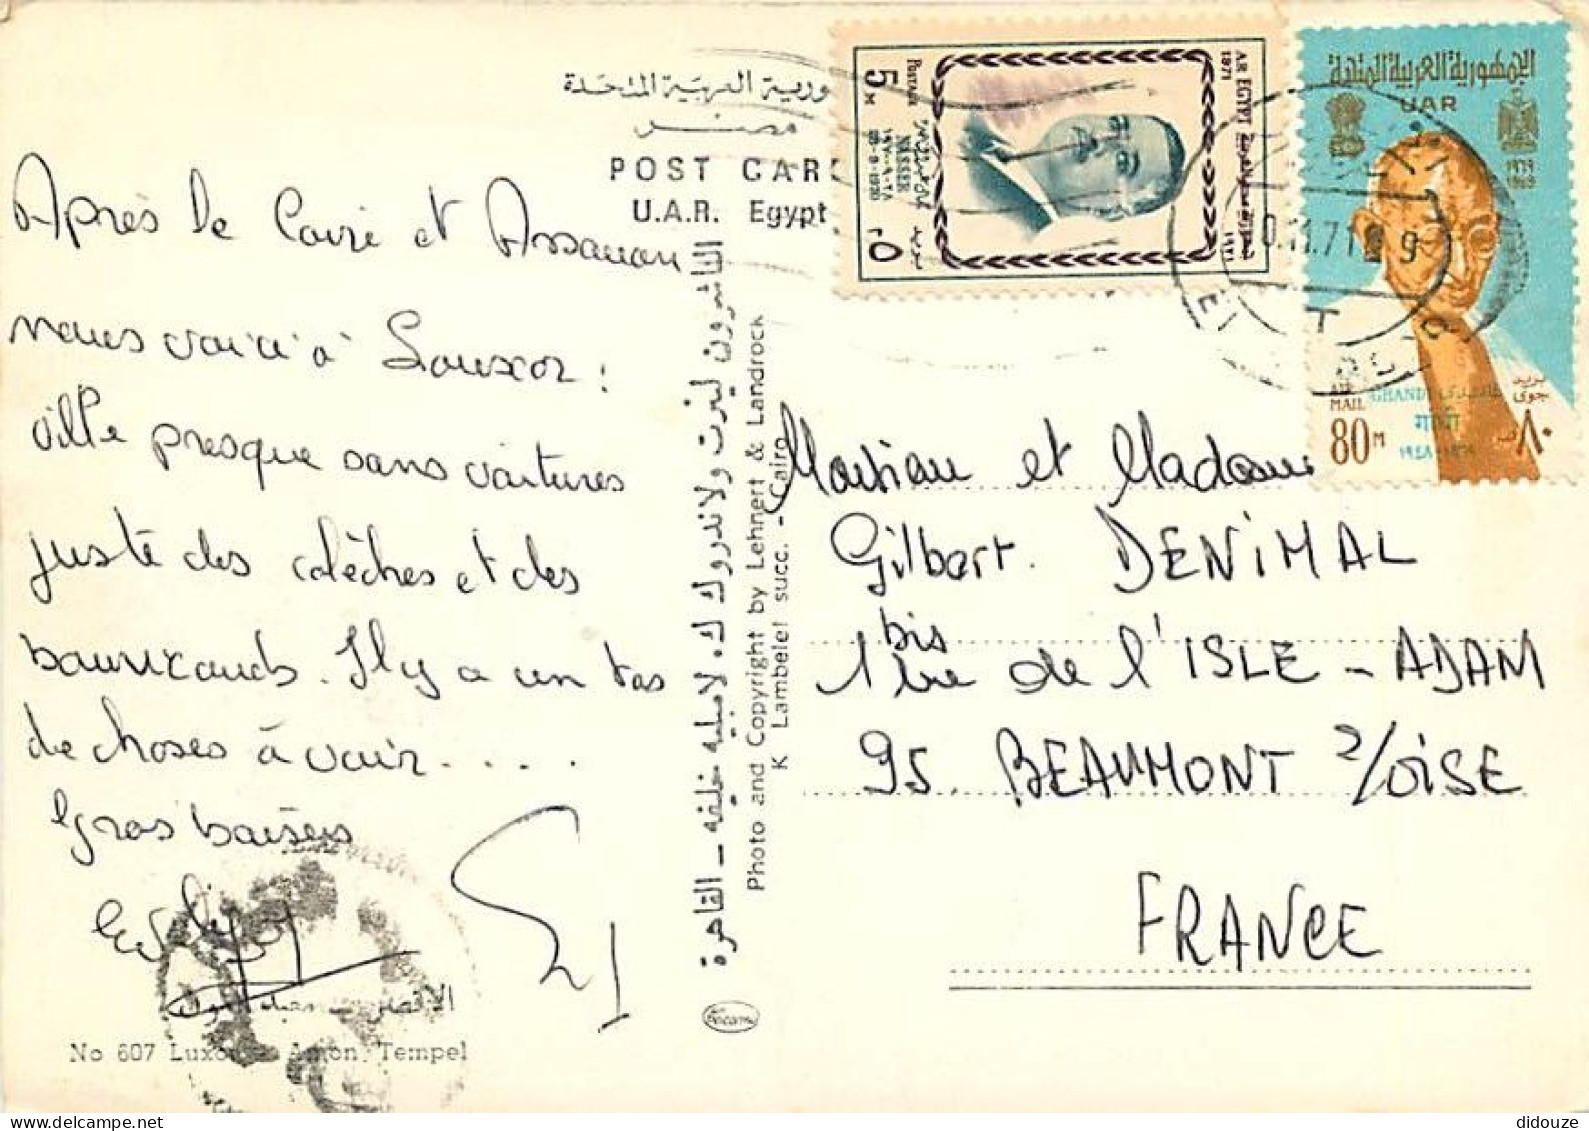 الجمهورية العربية المتحدة
مصر
POST CAR
U.A.R. Egypt
Après le Caire et Assouan
nous voici à Louxor :
ville presque sans voitures
juste des calèches et des
bourricauds. Il y a un tas
de choses à voir.....
Gros baisers
No 607 Luxor Amon Tempel
الناشرون لينرت ولاندروك ك. لامبليه خليفه - القاهرة
Photo and Copyright by Lehnert & Landrock
K Lambelet succ. - Cairo
A R EGYPT
1971
POSTAGE
5 M
NASSER
28-9-1970
بريد
٥
١٩٧١
الجمهورية العربية المتحدة
UAR
١٩٦٩
1969
AIR
MAIL
GHANDI
غاندى
गांधी
بريد
جوى
80 M
٨٠
0.11.71
9
Monsieur et Madame
Gilbert DENIMAL
1 bis rue de l'ISLE-ADAM
95 BEAUMONT s/OISE
FRANCE
didouze